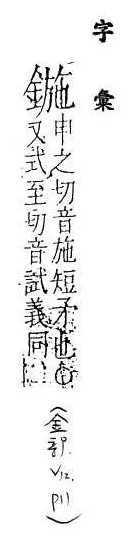 字彙
鍦
申之切音施短矛也○
又式至切音試義同
(金部. V12. P11)